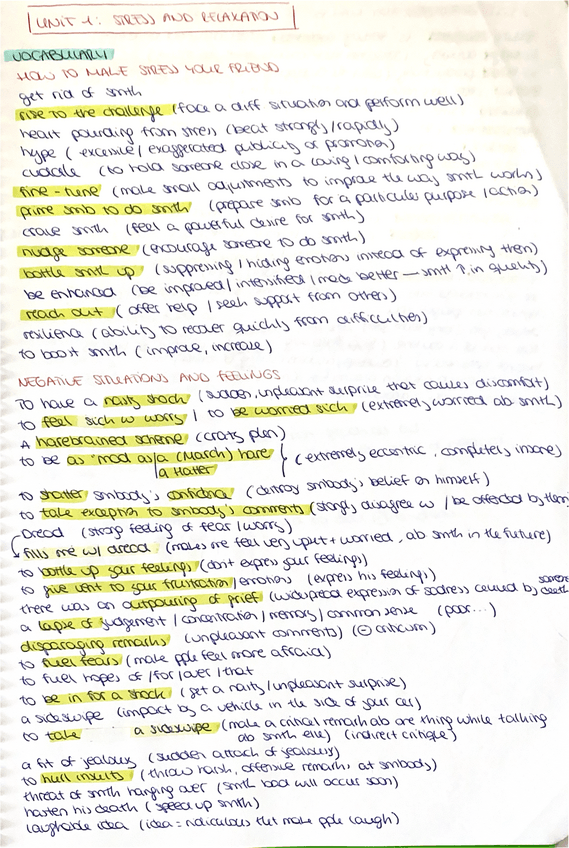 UNIT 1: STRESS AND RELAXATION
VOCABULARY
HOW TO MAKE STRESS YOUR FRIEND
get rid of smth
rise to the challenge (face a diff situation and perform well)
heart pounding from stress (beat strongly/rapidly)
hype (excessive/exaggerated publicity or promotion)
cuddle (to hold someone close in a loving/comforting way)
fine-tune (make small adjustments to improve the way smth works)
prime smb to do smth (prepare smb for a particular purpose/action)
crave smth (feel a powerful desire for smth)
nudge someone (encourage someone to do smth)
bottle smth up (suppressing/hiding emotions instead of expressing them)
be enhanced (be improved/intensified/made better — smth ↑ in quality)
reach out (offer help/seek support from others)
resilience (ability to recover quickly from difficulties)
to boost smth (improve, increase)
NEGATIVE SITUATIONS AND FEELINGS
To have a nasty shock (sudden, unpleasant surprise that causes discomfort)
to feel sick w worry / to be worried sick (extremely worried ab smth)
A harebrained scheme (crazy plan)
to be as mad as a (March) hare (extremely eccentric, completely insane)
a Hatter
to shatter smbody's confidence (destroy smbody's belief on himself)
to take exception to smbody's comments (strongly disagree w / be offected by them)
Dread (strong feeling of fear/worry)
fills me w/ dread (makes me feel very upset + worried, ab smth in the future)
to bottle up your feelings (don't express your feelings)
to give vent to your frustration/emotions (express his feelings)
there was an outpouring of grief (widespread expression of sadness caused by someone death
a lapse of judgement/concentration/memory/common sense (poor...)
disparaging remarks (unpleasant comments) (⊖ criticism)
to fuel fears (make pple feel more afraid)
to fuel hopes of /for/over/that
to be in for a shock (get a nasty/unpleasant surprise)
a sideswipe (impact by a vehicle in the side of your car)
to take a sideswipe (make a critical remark ab one thing while talking
ab smth else) (indirect critique)
a fit of jealousy (sudden attack of jealousy)
to hurl insults (throw harsh, offensive remarks at smbody)
threat of smth hanging over (smth bad will occur soon)
hasten his death (speed up smth)
laughable idea (idea = ridiculous that make pple laugh)